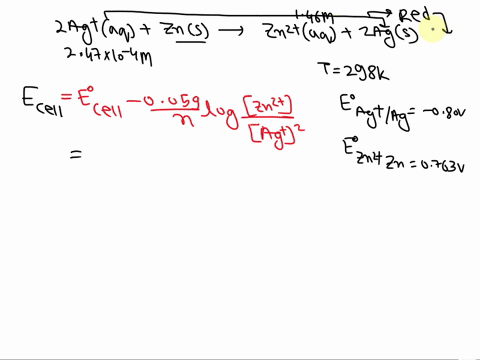 1.46M → Red
2Ag⁺(aq) + Zn(s) → Zn²⁺(aq) + 2Ag(s)
2.47x10⁻⁴M
T=298k
E cell = E° cell - 0.059/n log [Zn²⁺]/[Ag⁺]²
E° Ag⁺/Ag = -0.80v
=
E° Zn²⁺ Zn = 0.763v